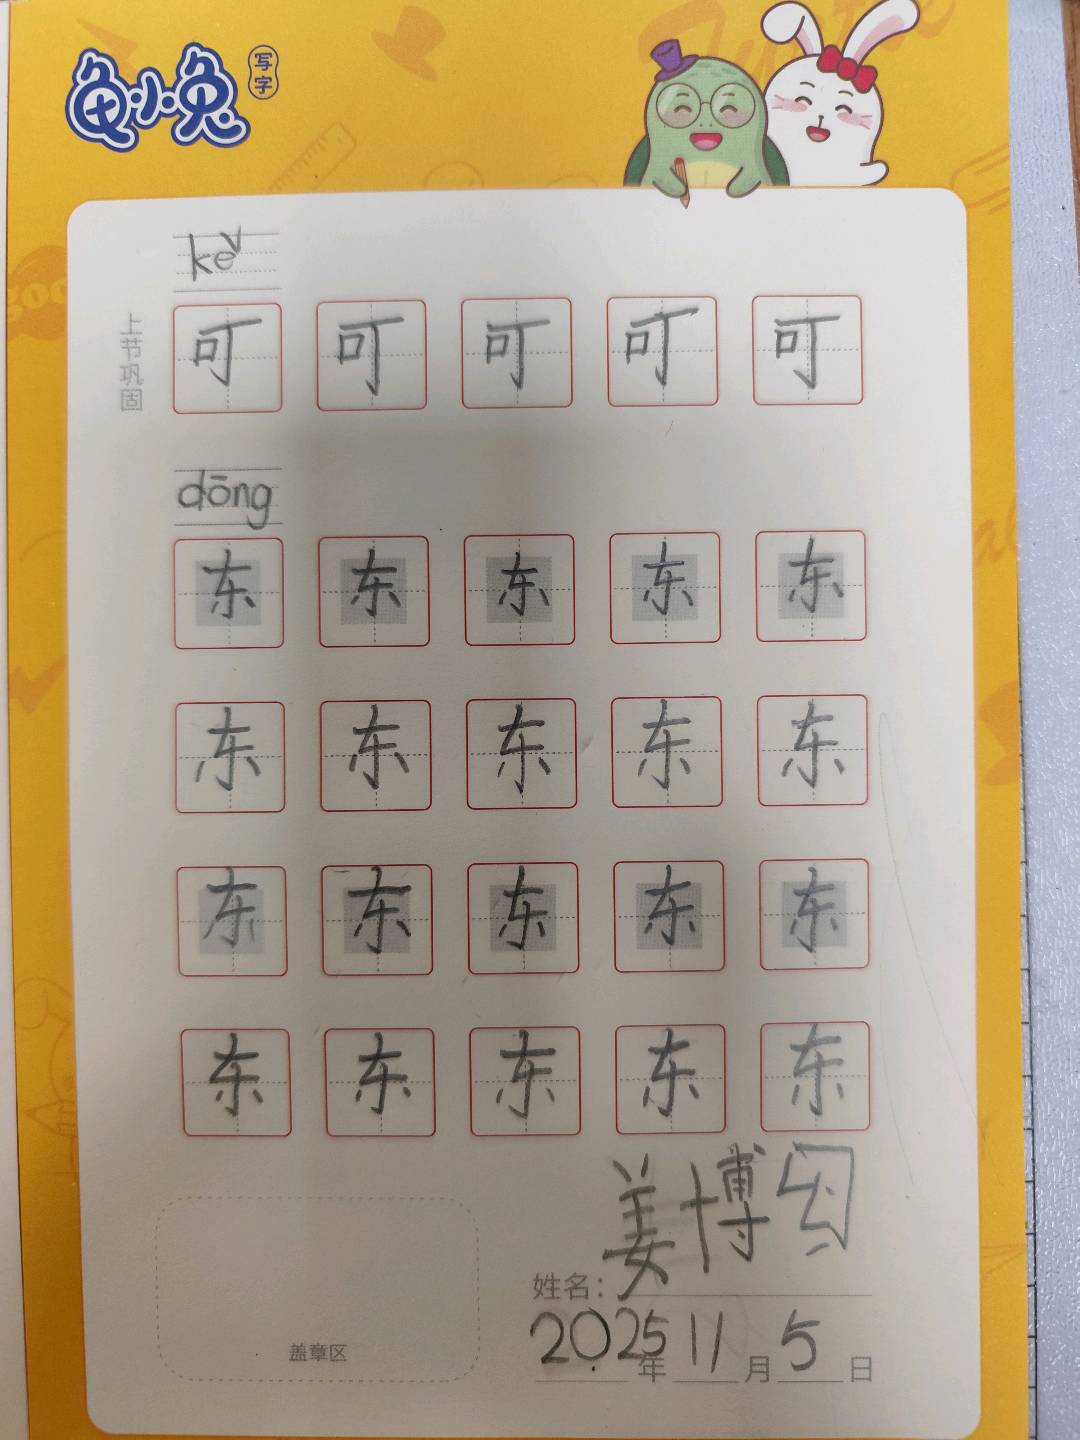 龟小兔
写字
kě
上节巩固
可 可 可 可 可
dōng
东 东 东 东 东
东 东 东 东 东
东 东 东 东 东
东 东 东 东 东
姓名：姜博
2025年11月5日
盖章区